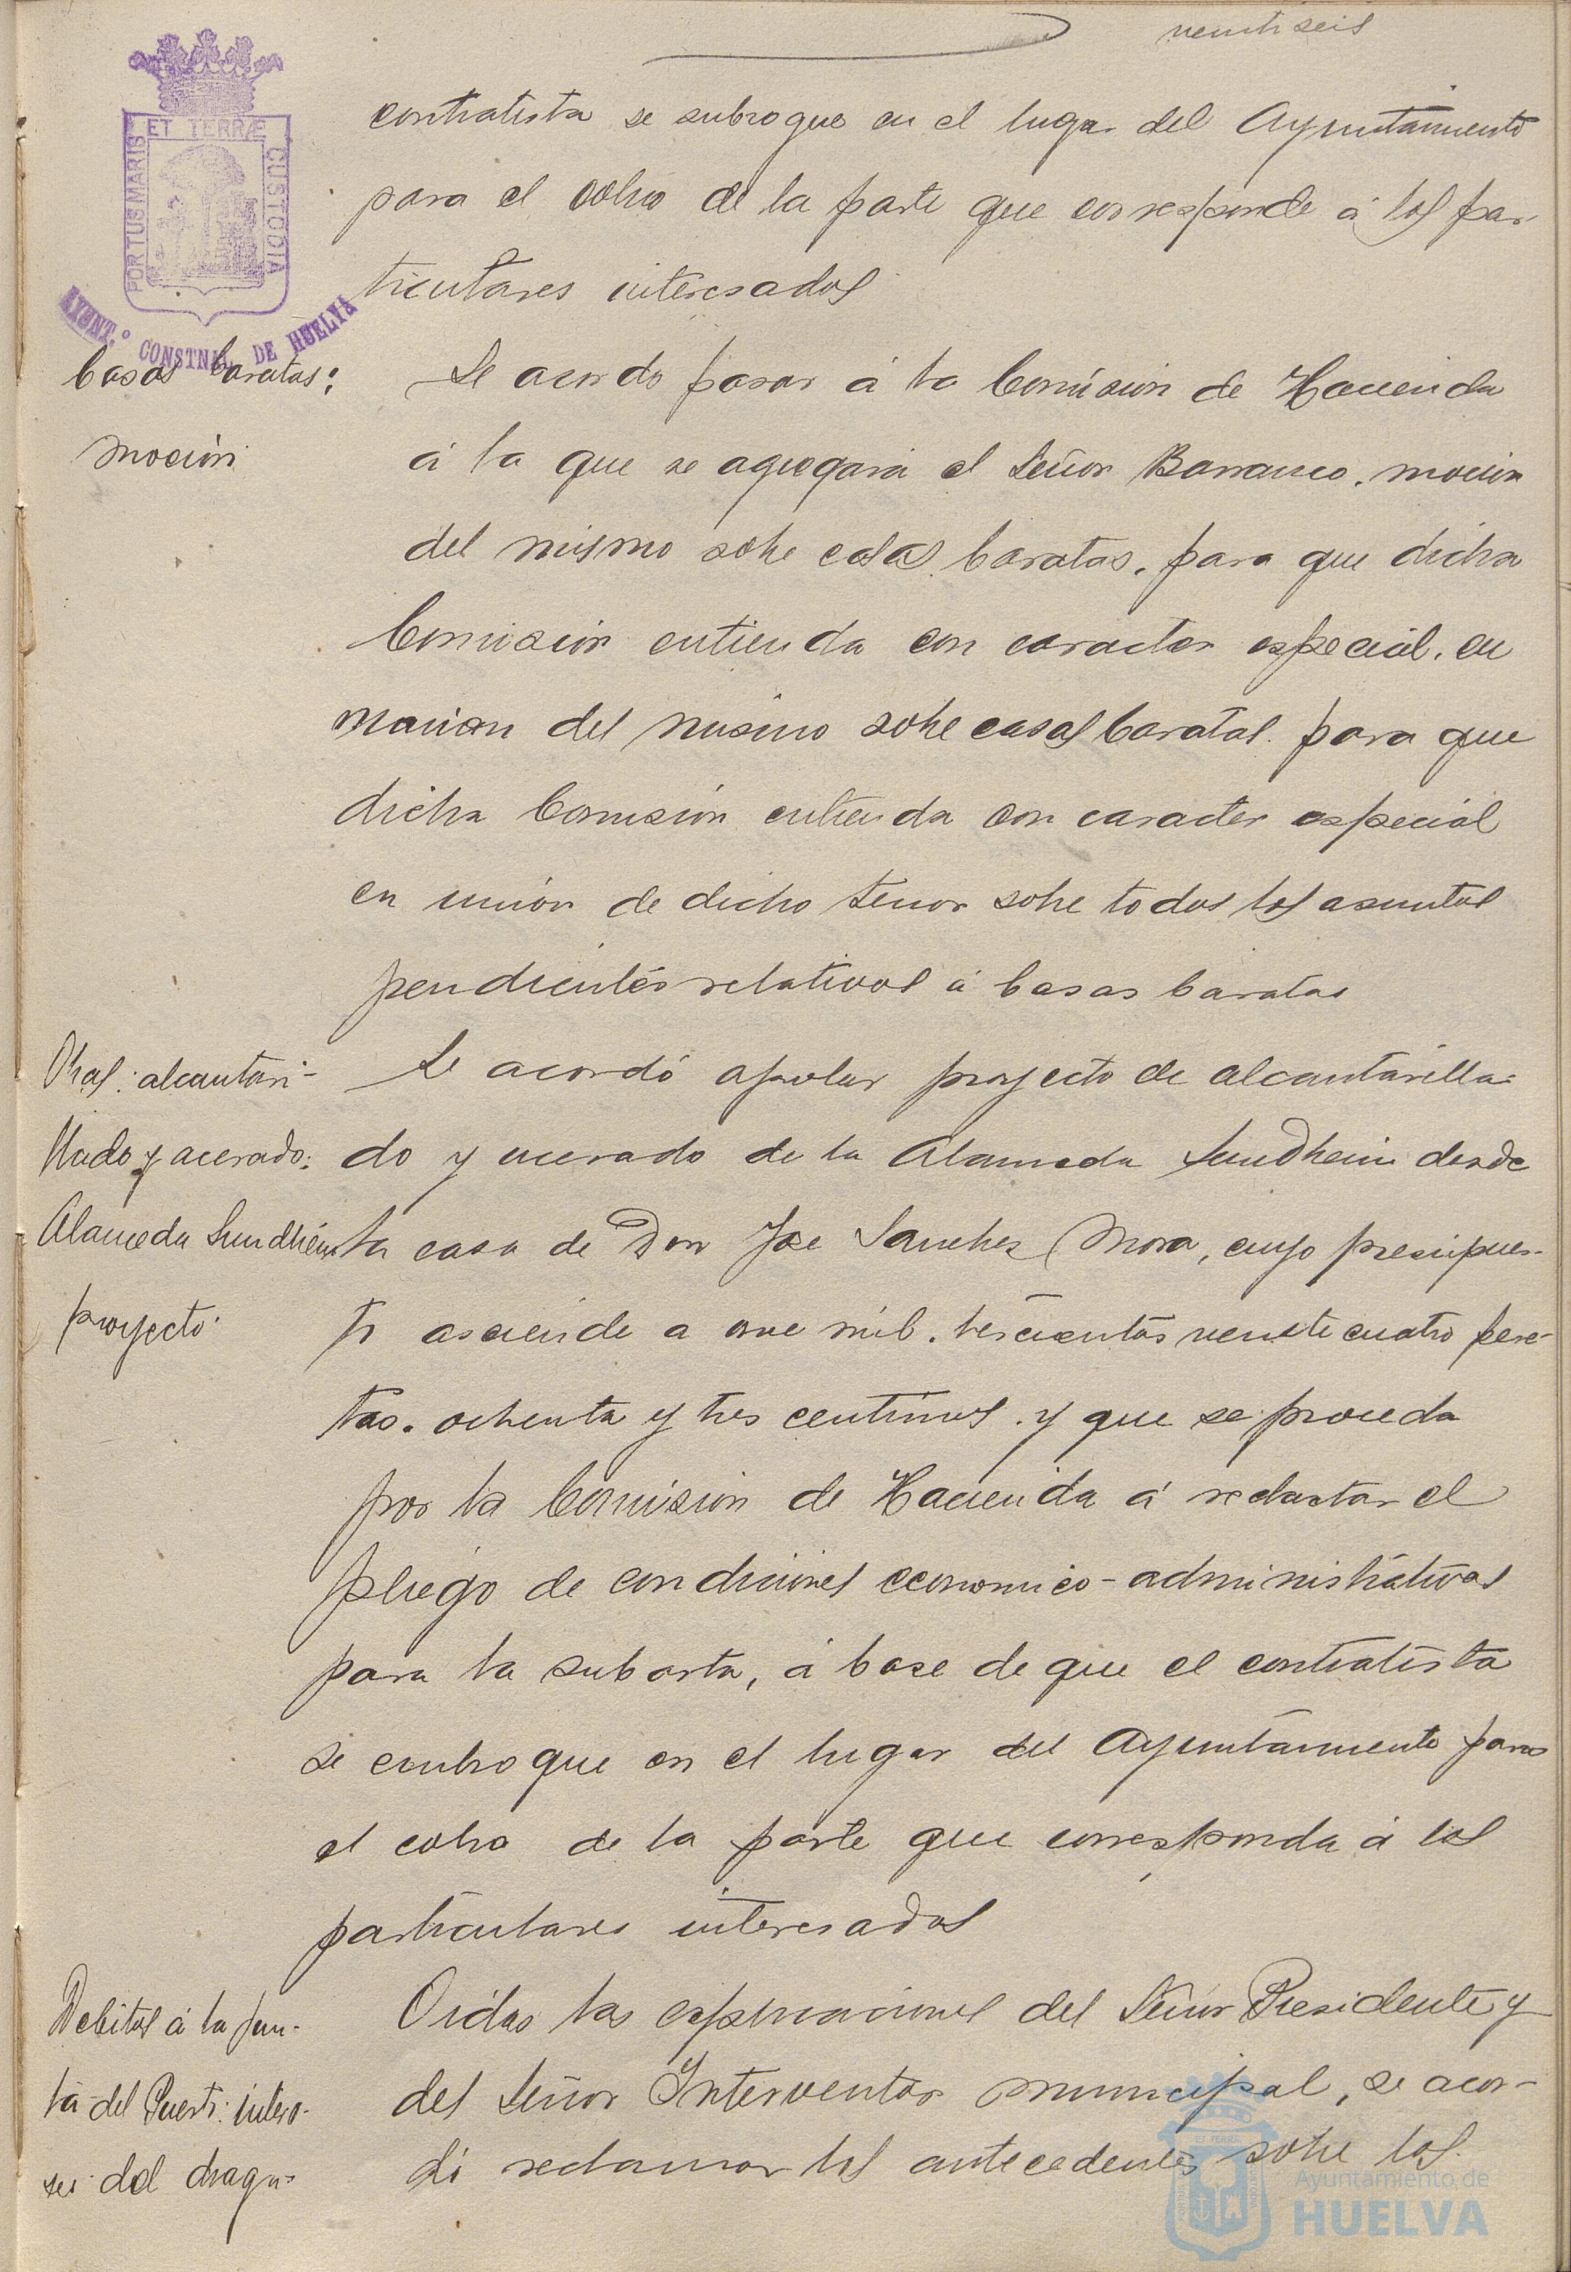 veintiseis
PORTUS MARIS ET TERRÆ CUSTODIA
AYUNT.º CONSTNAL. DE HUELVA
contratista se subrogue en el lugar del Ayuntamiento
para el cobro de la parte que corresponde á los par-
ticulares interesados
Casas baratas:
moción
Se acordo pasar á la Comision de Hacienda
á la que se agregará el Señor Barranco, mocion
del mismo sobre casas baratas, para que dicha
Comisión entienda con caracter especial, en
del mismo sobre casas baratas para que
dicha Comisión entienda con caracter especial
en unión de dicho Señor sobre todos los asuntos
pendientes relativos á Casas baratas
Obras: alcantari-
llado y acerado:
Alameda Sundheim
proyecto
Se acordó aprobar proyecto de alcantarilla-
do y acerado de la Alameda Sundheim desde
la casa de Don Jose Sanchez Mora, cuyo presupues-
to asciende a once mil trescientas veinte cuatro pese-
tas, ochenta y tres centimos y que se proceda
por la Comision de Hacienda á redactar el
pliego de condiciones economico-administrativas
para la subasta, á base de que el contratista
se en el lugar del Ayuntamiento para
el cobro de la parte que corresponda á los
particulares interesados
Debitos á la Jun-
ta del Puerto: intere-
ses del draga-
Oidas las explicaciones del Señor Presidente y
del Señor Interventor municipal, se acor-
dó reclamar los antecedentes sobre los
Ayuntamiento de
HUELVA